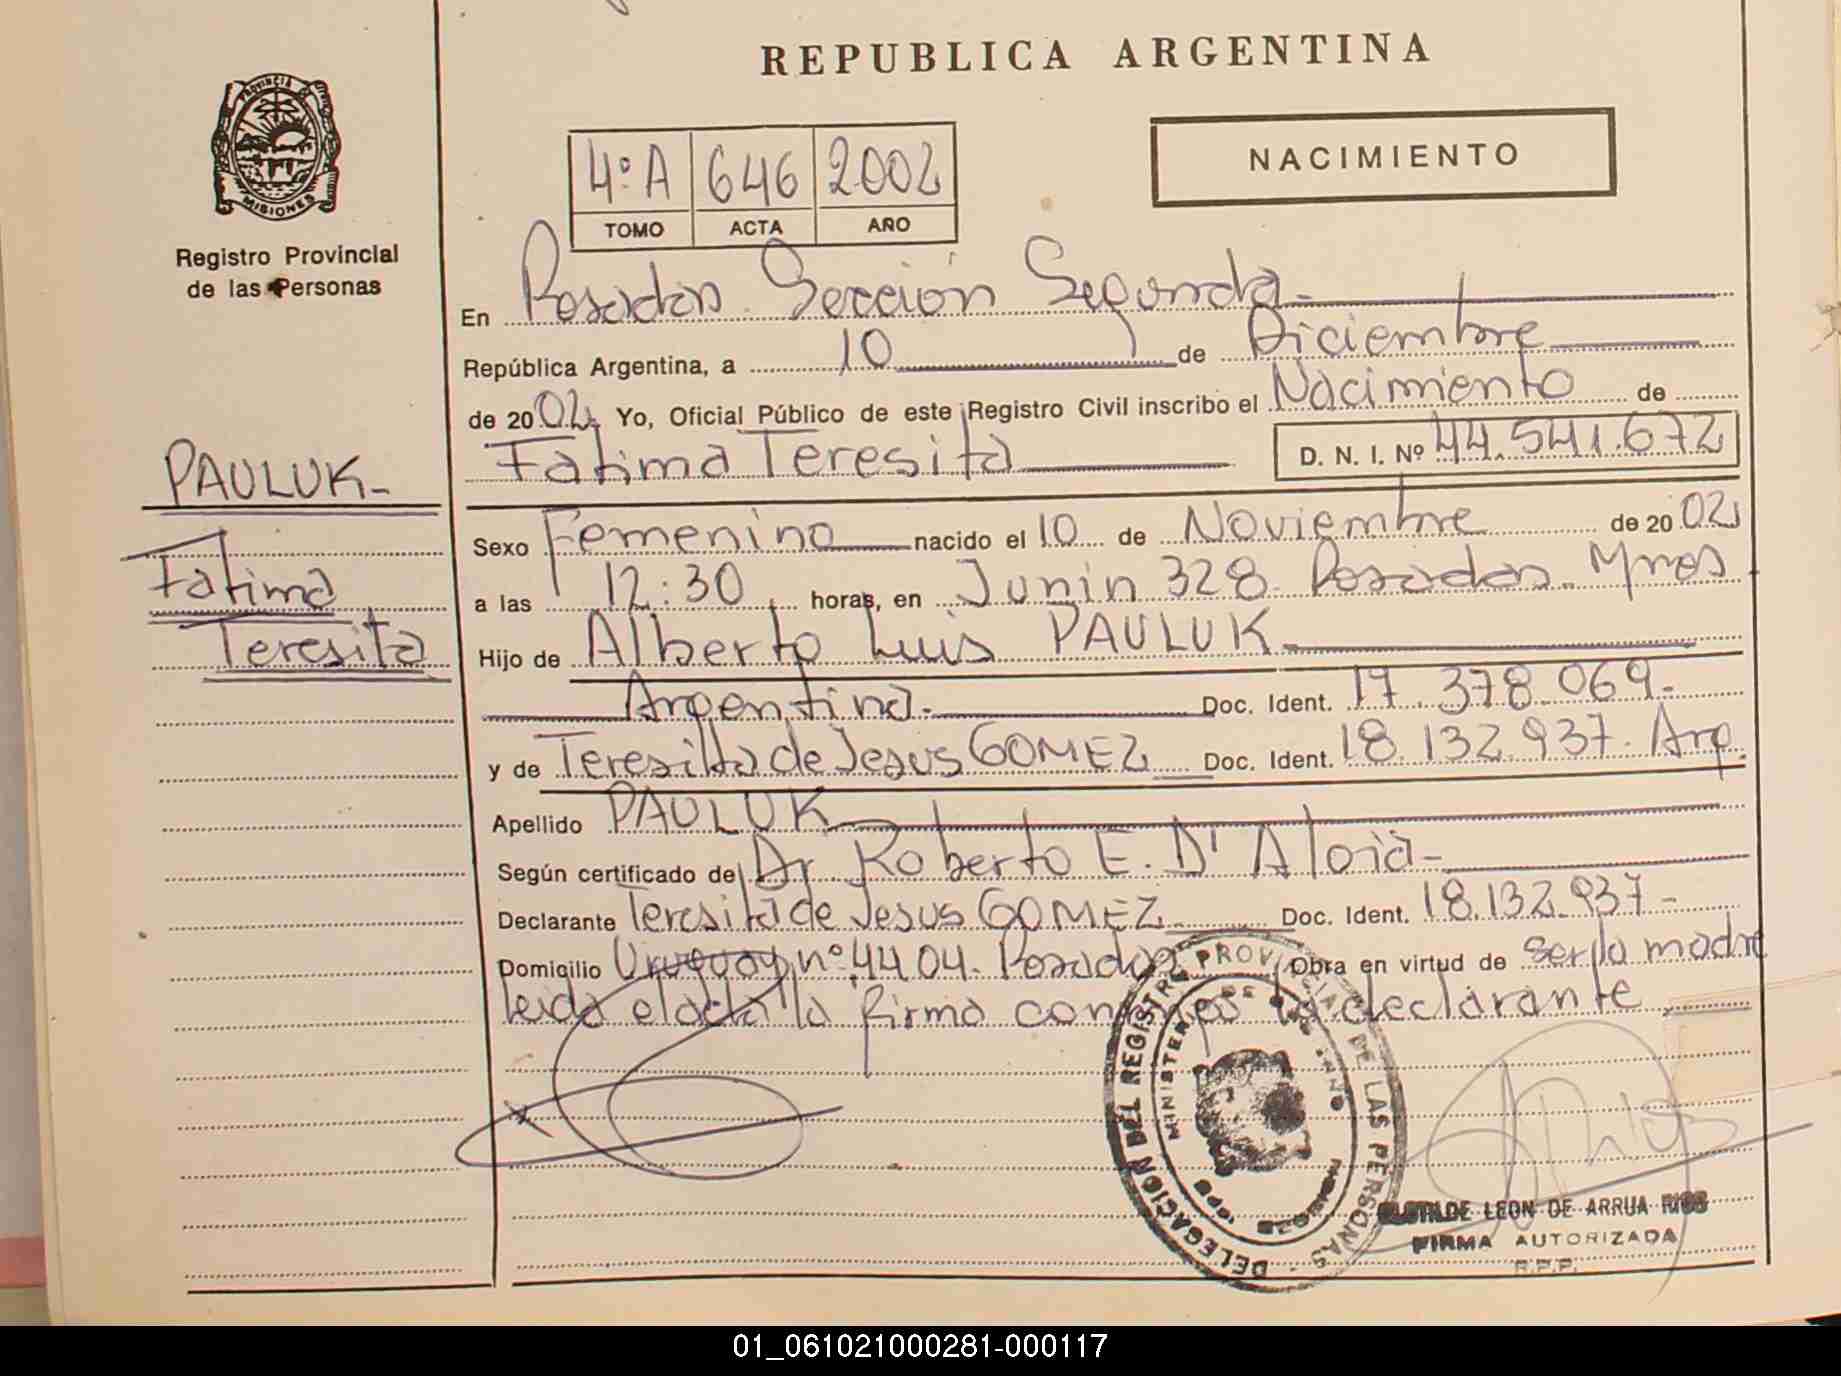 REPUBLICA ARGENTINA
PROVINCIA DE
MISIONES
Registro Provincial
de las Personas
4º A 646 2002
TOMO ACTA AÑO
NACIMIENTO
En Posadas Sección Segunda
República Argentina, a 10 de Diciembre
de 2002 Yo, Oficial Público de este Registro Civil inscribo el Nacimiento de
Fatima Teresita D. N. I. Nº 44.541.672
PAULUK
Fatima
Teresita
Sexo Femenino nacido el 10 de Noviembre de 2002
a las 12:30 horas, en Junin 328. Posadas. Mnes
Hijo de Alberto Luis PAULUK
Argentina. Doc. Ident. 17.378.069.
y de Teresita de Jesus GOMEZ Doc. Ident. 18.132.937. Arg.
Apellido PAULUK
Según certificado de Dr Roberto E. D' Aloia
Declarante Teresita de Jesus GOMEZ Doc. Ident. 18.132.937
Domicilio Uruguay nº 4404. Posadas Obra en virtud de ser la madre
leida el acta la firma la declarante
DELEGACION DEL REGISTRO PROVINCIAL DE LAS PERSONAS
LEON DE ARRUA RIOS
FIRMA AUTORIZADA
R.P.P.
01_061021000281-000117